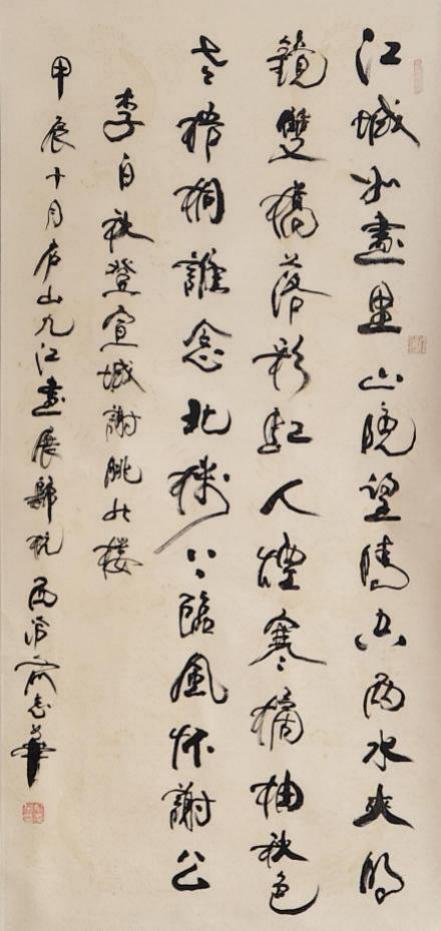 江城如畫里山晚望晴空兩水夾明
鏡雙橋落彩虹人煙寒橘柚秋色
老梧桐誰念北樓上臨風怀謝公
李白秋登宣城謝朓北楼
甲辰十月庐山九江畫展歸杭西泠